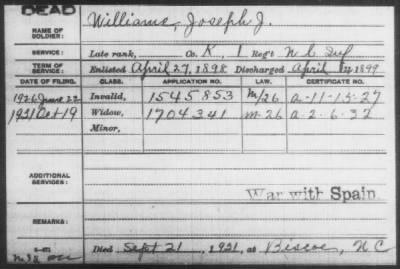 DEAD
NAME OF SOLDIER: Williams, Joseph J.
SERVICE: Late rank, Co. K, 1 Reg't N C Inf
TERM OF SERVICE: Enlisted April 27, 1898 Discharged April 1899
DATE OF FILING. CLASS. APPLICATION NO. LAW. CERTIFICATE NO.
1926 June 22 Invalid, 1545853 M/26 a-11-15-27
1931 Oct 19 Widow, 1704341 m-26 a-2-6-32
Minor,
ADDITIONAL SERVICES:
War with Spain
REMARKS:
Died Sept 21, 1931, at Biscoe, N C